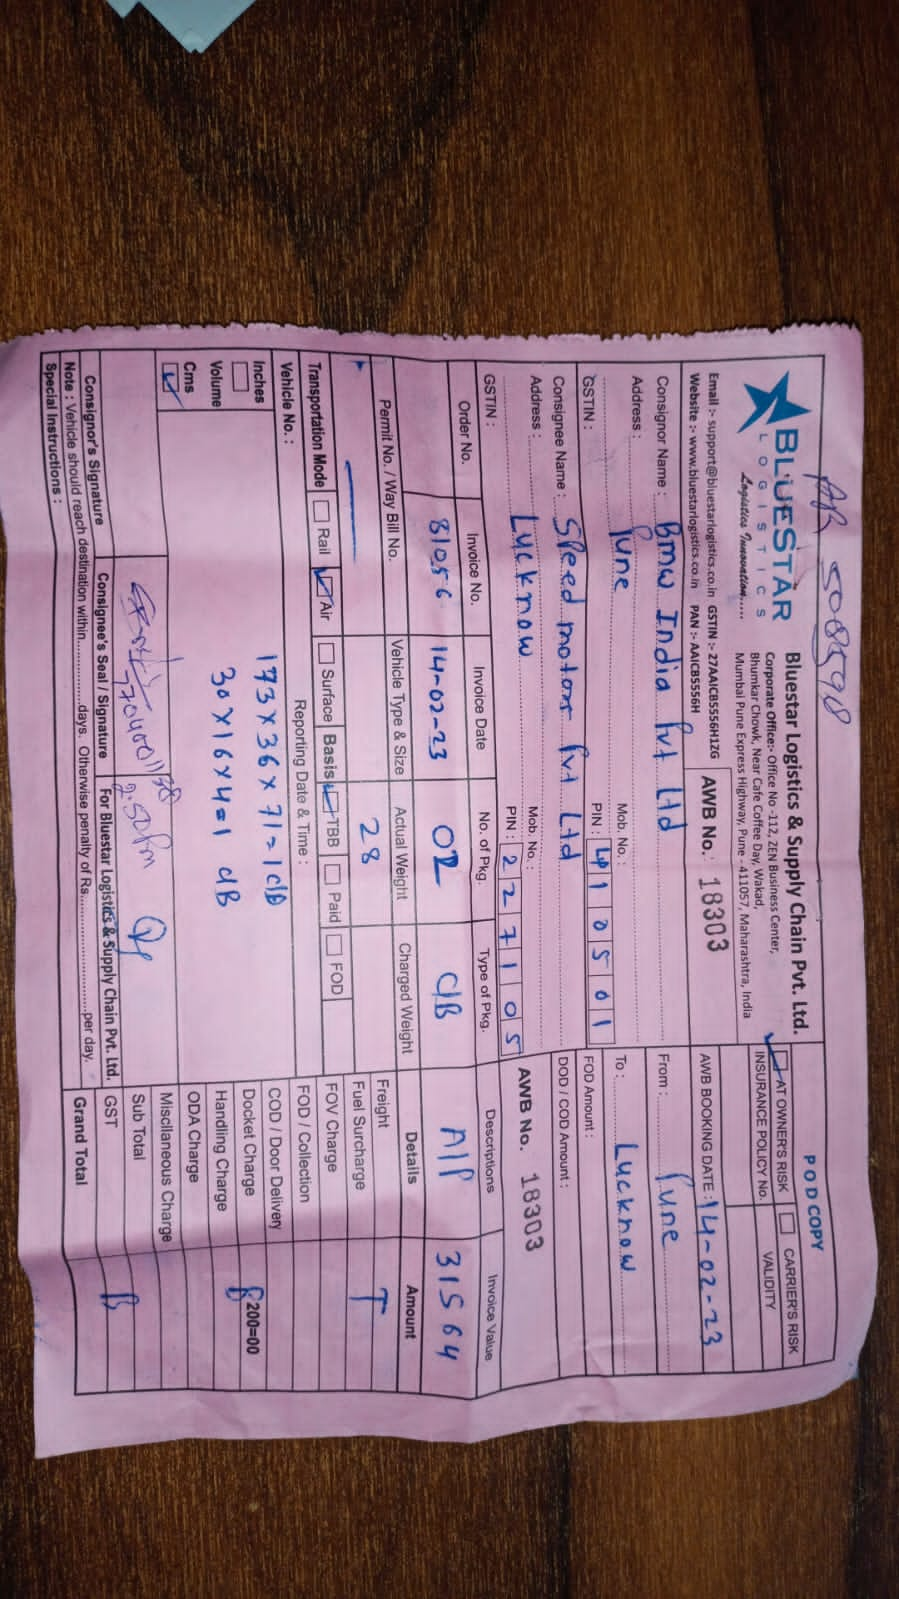 AR 5085598
BLUESTAR
LOGISTICS
Logistics Innovation.....
Bluestar Logistics & Supply Chain Pvt. Ltd.
Corporate Office:- Office No -112, ZEN Business Center,
Bhumkar Chowk, Near Cafe Coffee Day, Wakad,
Mumbai Pune Express Highway, Pune - 411057, Maharashtra, India
POD COPY
AT OWNER'S RISK CARRIER'S RISK
INSURANCE POLICY No. VALIDITY
Email :- support@bluestarlogistics.co.in GSTIN :- 27AAICB5556H1ZG
Website :- www.bluestarlogistics.co.in PAN :- AAICB5556H
AWB No.: 18303
AWB BOOKING DATE : 14-02-23
Consignor Name : Bmw India Pvt Ltd
Address : Pune
Mob. No. :
GSTIN :
PIN : 410501
From : Pune
To : Lucknow
FOD Amount :
Consignee Name : Speed motors Pvt Ltd
DOD / COD Amount :
Address : Lucknow
Mob. No. :
AWB No. 18303
GSTIN :
PIN : 227105
Order No. Invoice No. Invoice Date No. of Pkg. Type of Pkg. Descriptions Invoice Value
81056 14-02-23 02 C/B M/P 31564
Permit No. / Way Bill No. Vehicle Type & Size Actual Weight Charged Weight Details Amount
28
Freight
Fuel Surcharge
Transportation Mode Rail Air Surface Basis TBB Paid FOD
FOV Charge
Vehicle No. : Reporting Date & Time :
FOD / Collection
Inches
COD / Door Delivery
173x36x71=1 C/B
Docket Charge 200=00
Volume
30x16x4=1 C/B
Handling Charge
Cms
ODA Charge
Miscllaneous Charge
2.50Pm
Sub Total
Consignor's Signature Consignee's Seal / Signature For Bluestar Logistics & Supply Chain Pvt. Ltd.
GST
Note : Vehicle should reach destination within............days. Otherwise penalty of Rs....................per day.
Grand Total
Special Instructions :